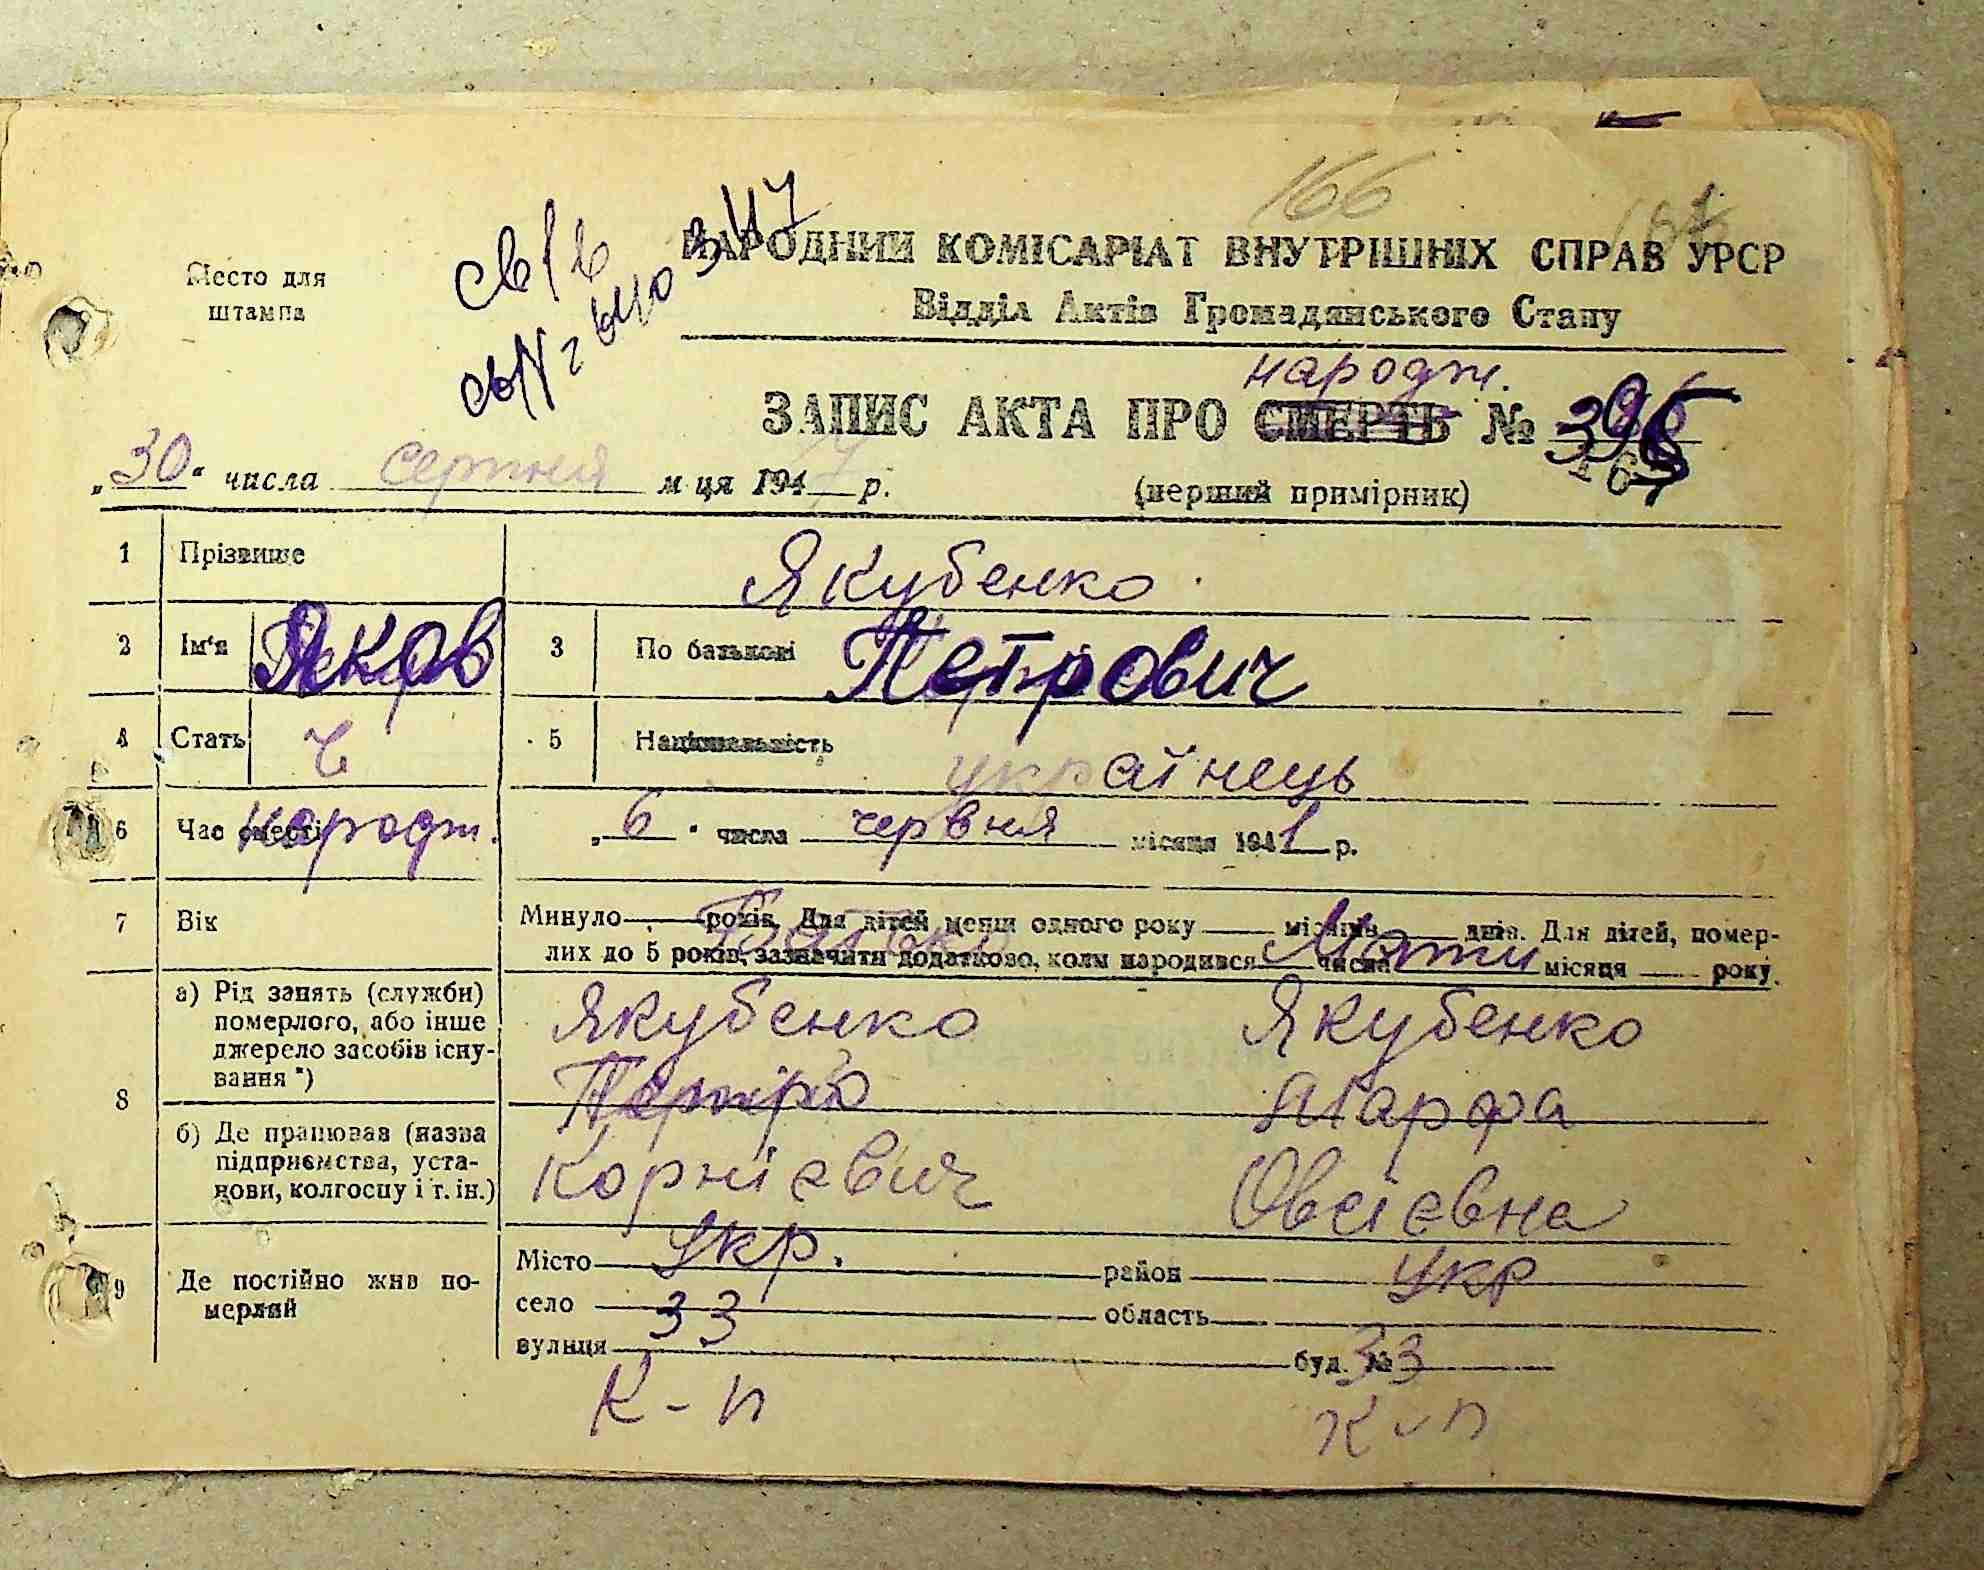 166
Место для
штампа
НАРОДНИЙ КОМІСАРІАТ ВНУТРІШНІХ СПРАВ УРСР
Відділ Актів Громадянського Стану
народж.
ЗАПИС АКТА ПРО СМЕРТЬ №
„30“ числа серпня м ця 194 р.
(перший примірник)
1 Прізвище Якубенко
2 Ім'я Яков 3 По батькові Петрович
4 Стать ч 5 Національність українець
6 Час смерті народж. „6“ числа червня місяця 1941 р.
7 Вік Минуло років. Для дітей менш одного року місяців днів. Для дітей, помер-
лих до 5 років, зазначити додатково, коли народився числа місяця року.
Батько Мати
8 а) Рід занять (служби)
померлого, або інше
джерело засобів існу-
вання *)
Якубенко Якубенко
Петро Марфа
б) Де працював (назва
підприємства, уста-
нови, колгоспу і т. ін.)
Корнієвич Овсіевна
9 Де постійно жив по-
мерлий
Місто Укр. район Укр
село область
33
вулиця буд. № 33
К-п К-п